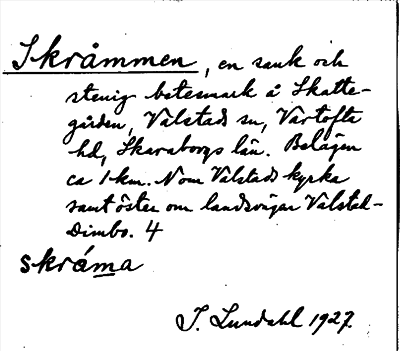 Skråmmen, en sank och
stenig betesmark å Skatte-
gården, Valstads sn, Vartofta
hd, Skaraborgs län. Belägen
ca 1 km. N om Valstads kyrka
samt öster om landsvägen Valstad-
Dimbo. 4
skráma
J. Lundahl 1927.